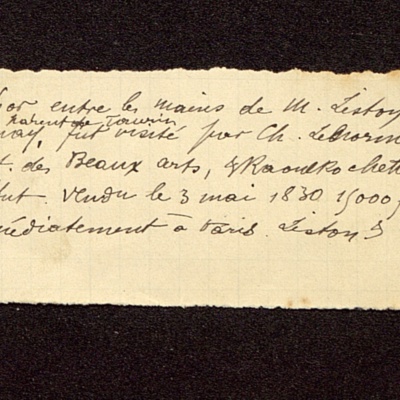 or entre les mains de M. Liston
parent de Taurin
nay, fut visité par Ch. Lenorm
t. des Beaux arts, & Raoul Rochett
ut. Vendu le 3 mai 1830 15000 f
médiatement à Paris. Liston